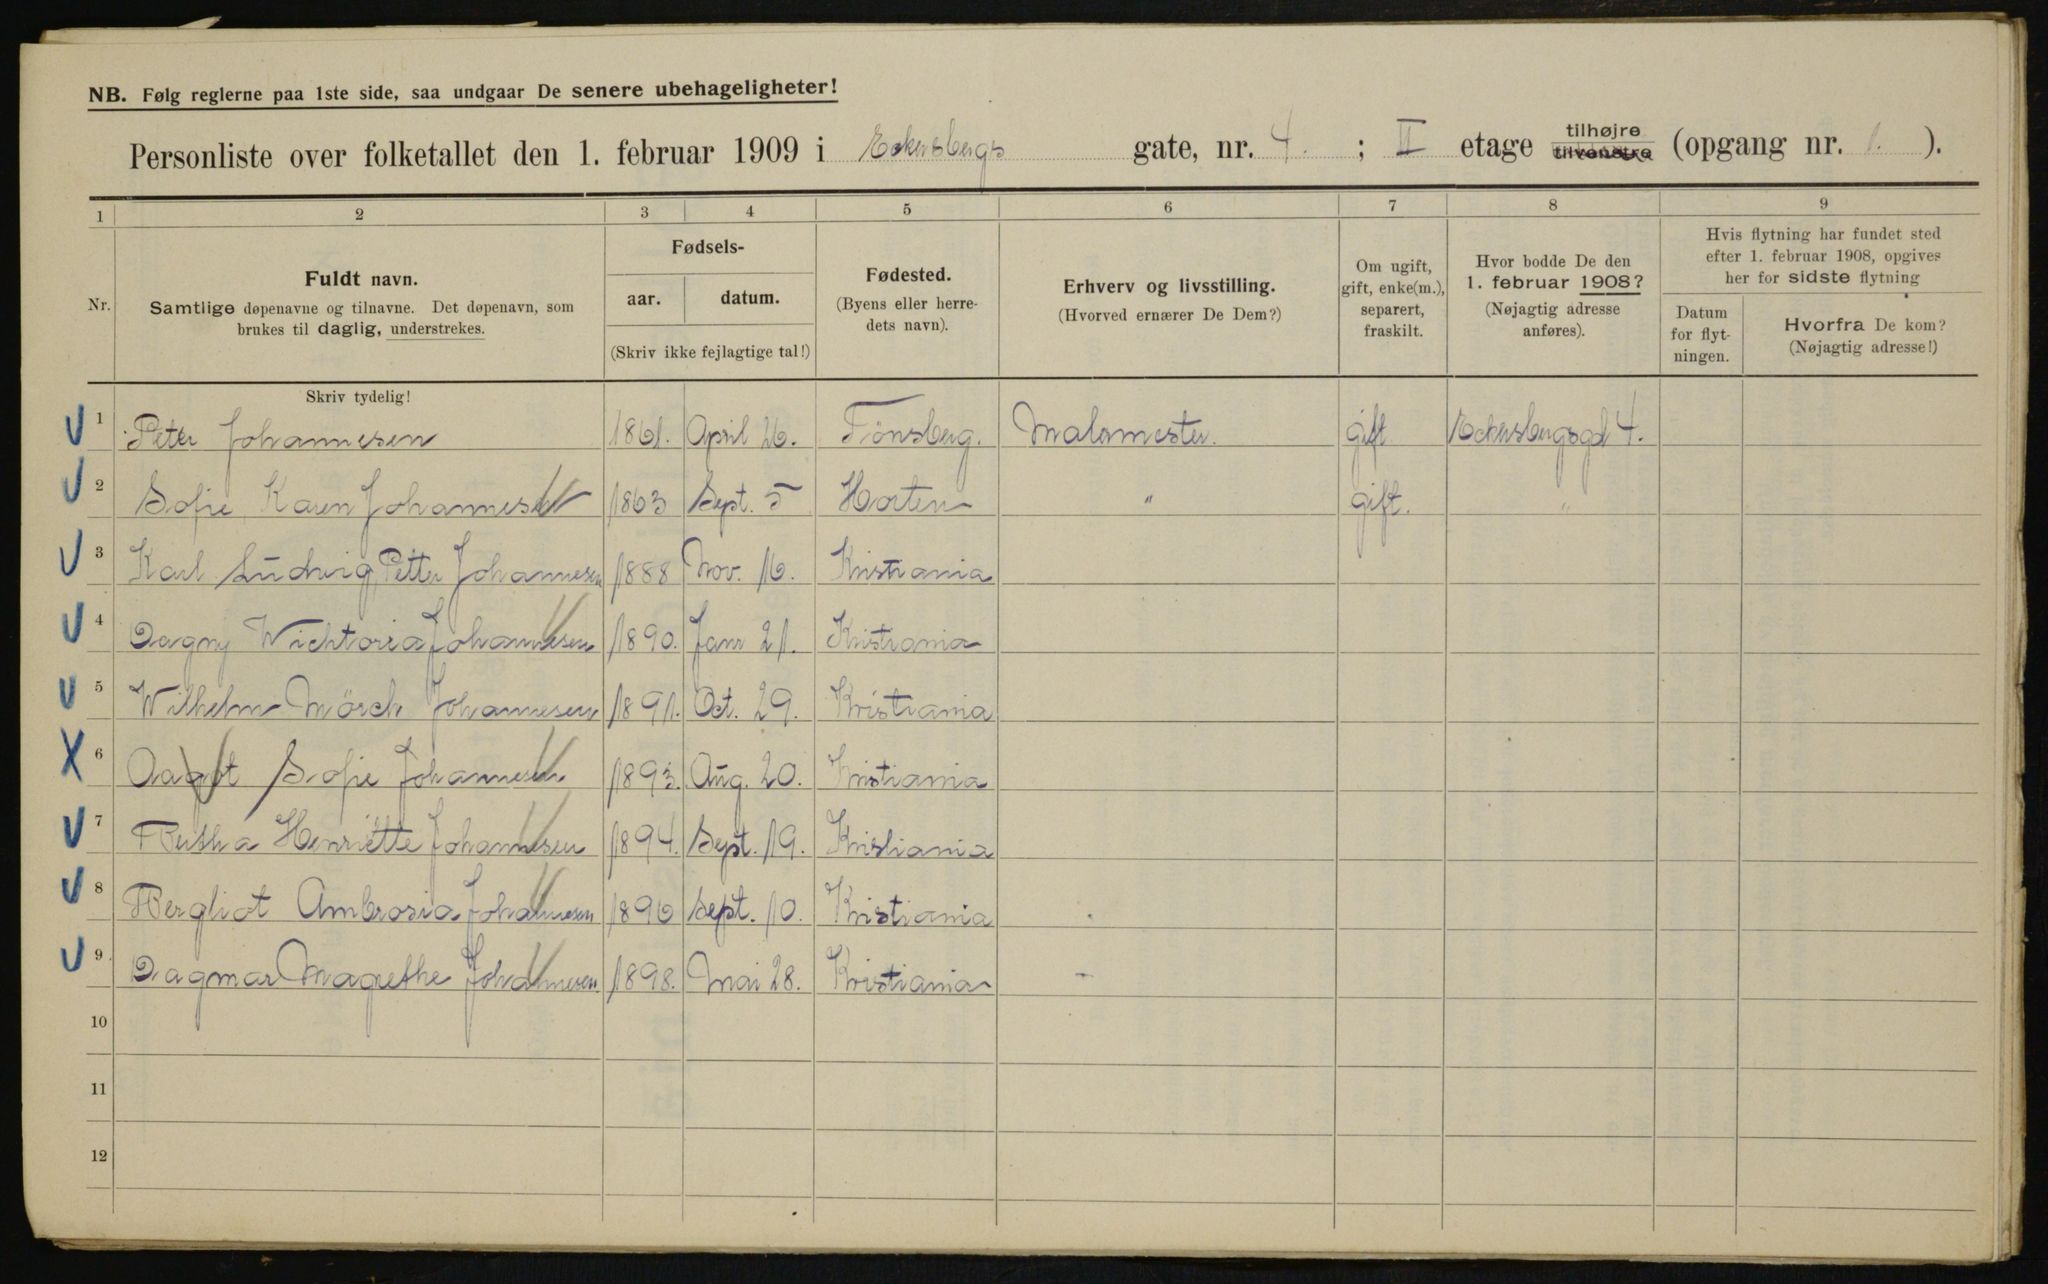 NB. Følg reglerne paa 1ste side, saa undgaar De senere ubehageligheter!
Personliste over folketallet den 1. februar 1909 i Eckersbergs gate, nr. 4. ; II etage tilhøjre tilvenstre (opgang nr. 1. ).
1 2 3 4 5 6 7 8 9
Nr. Fuldt navn. Samtlige døpenavne og tilnavne. Det døpenavn, som brukes til daglig, understrekes.
Fødsels- aar. datum. (Skriv ikke fejlagtige tal!)
Fødested. (Byens eller herredets navn).
Erhverv og livsstilling. (Hvorved ernærer De Dem?)
Om ugift, gift, enke(m.), separert, fraskilt.
Hvor bodde De den 1. februar 1908? (Nøjagtig adresse anføres).
Hvis flytning har fundet sted efter 1. februar 1908, opgives her for sidste flytning
Datum for flytningen.
Hvorfra De kom? (Nøjagtig adresse!)
Skriv tydelig!
1 Peter Johannesen 1861. April 26. Tönsberg. Malermester. gift Eckersbergsgd 4.
2 Sofie Karen Johannesen 1863 Sept. 5 Horten " gift. "
3 Karl Ludvig Petter Johannesen 1888 Nov. 16. Kristiania
4 Dagny Wichtoria Johannesen 1890. Janr 21. Kristiania
5 Wilhelm Mörch Johannesen 1891. Oct. 29. Kristiania
6 Aagot Sofie Johannesen 1893. Aug. 20. Kristiania
7 Bertha Henriette Johannesen 1894. Sept. 19. Kristiania
8 Bergliot Ambrosia Johannesen 1896 Sept. 10. Kristiania
9 Dagmar Magrethe Johannesen 1898. Mai 28. Kristiania
10
11
12